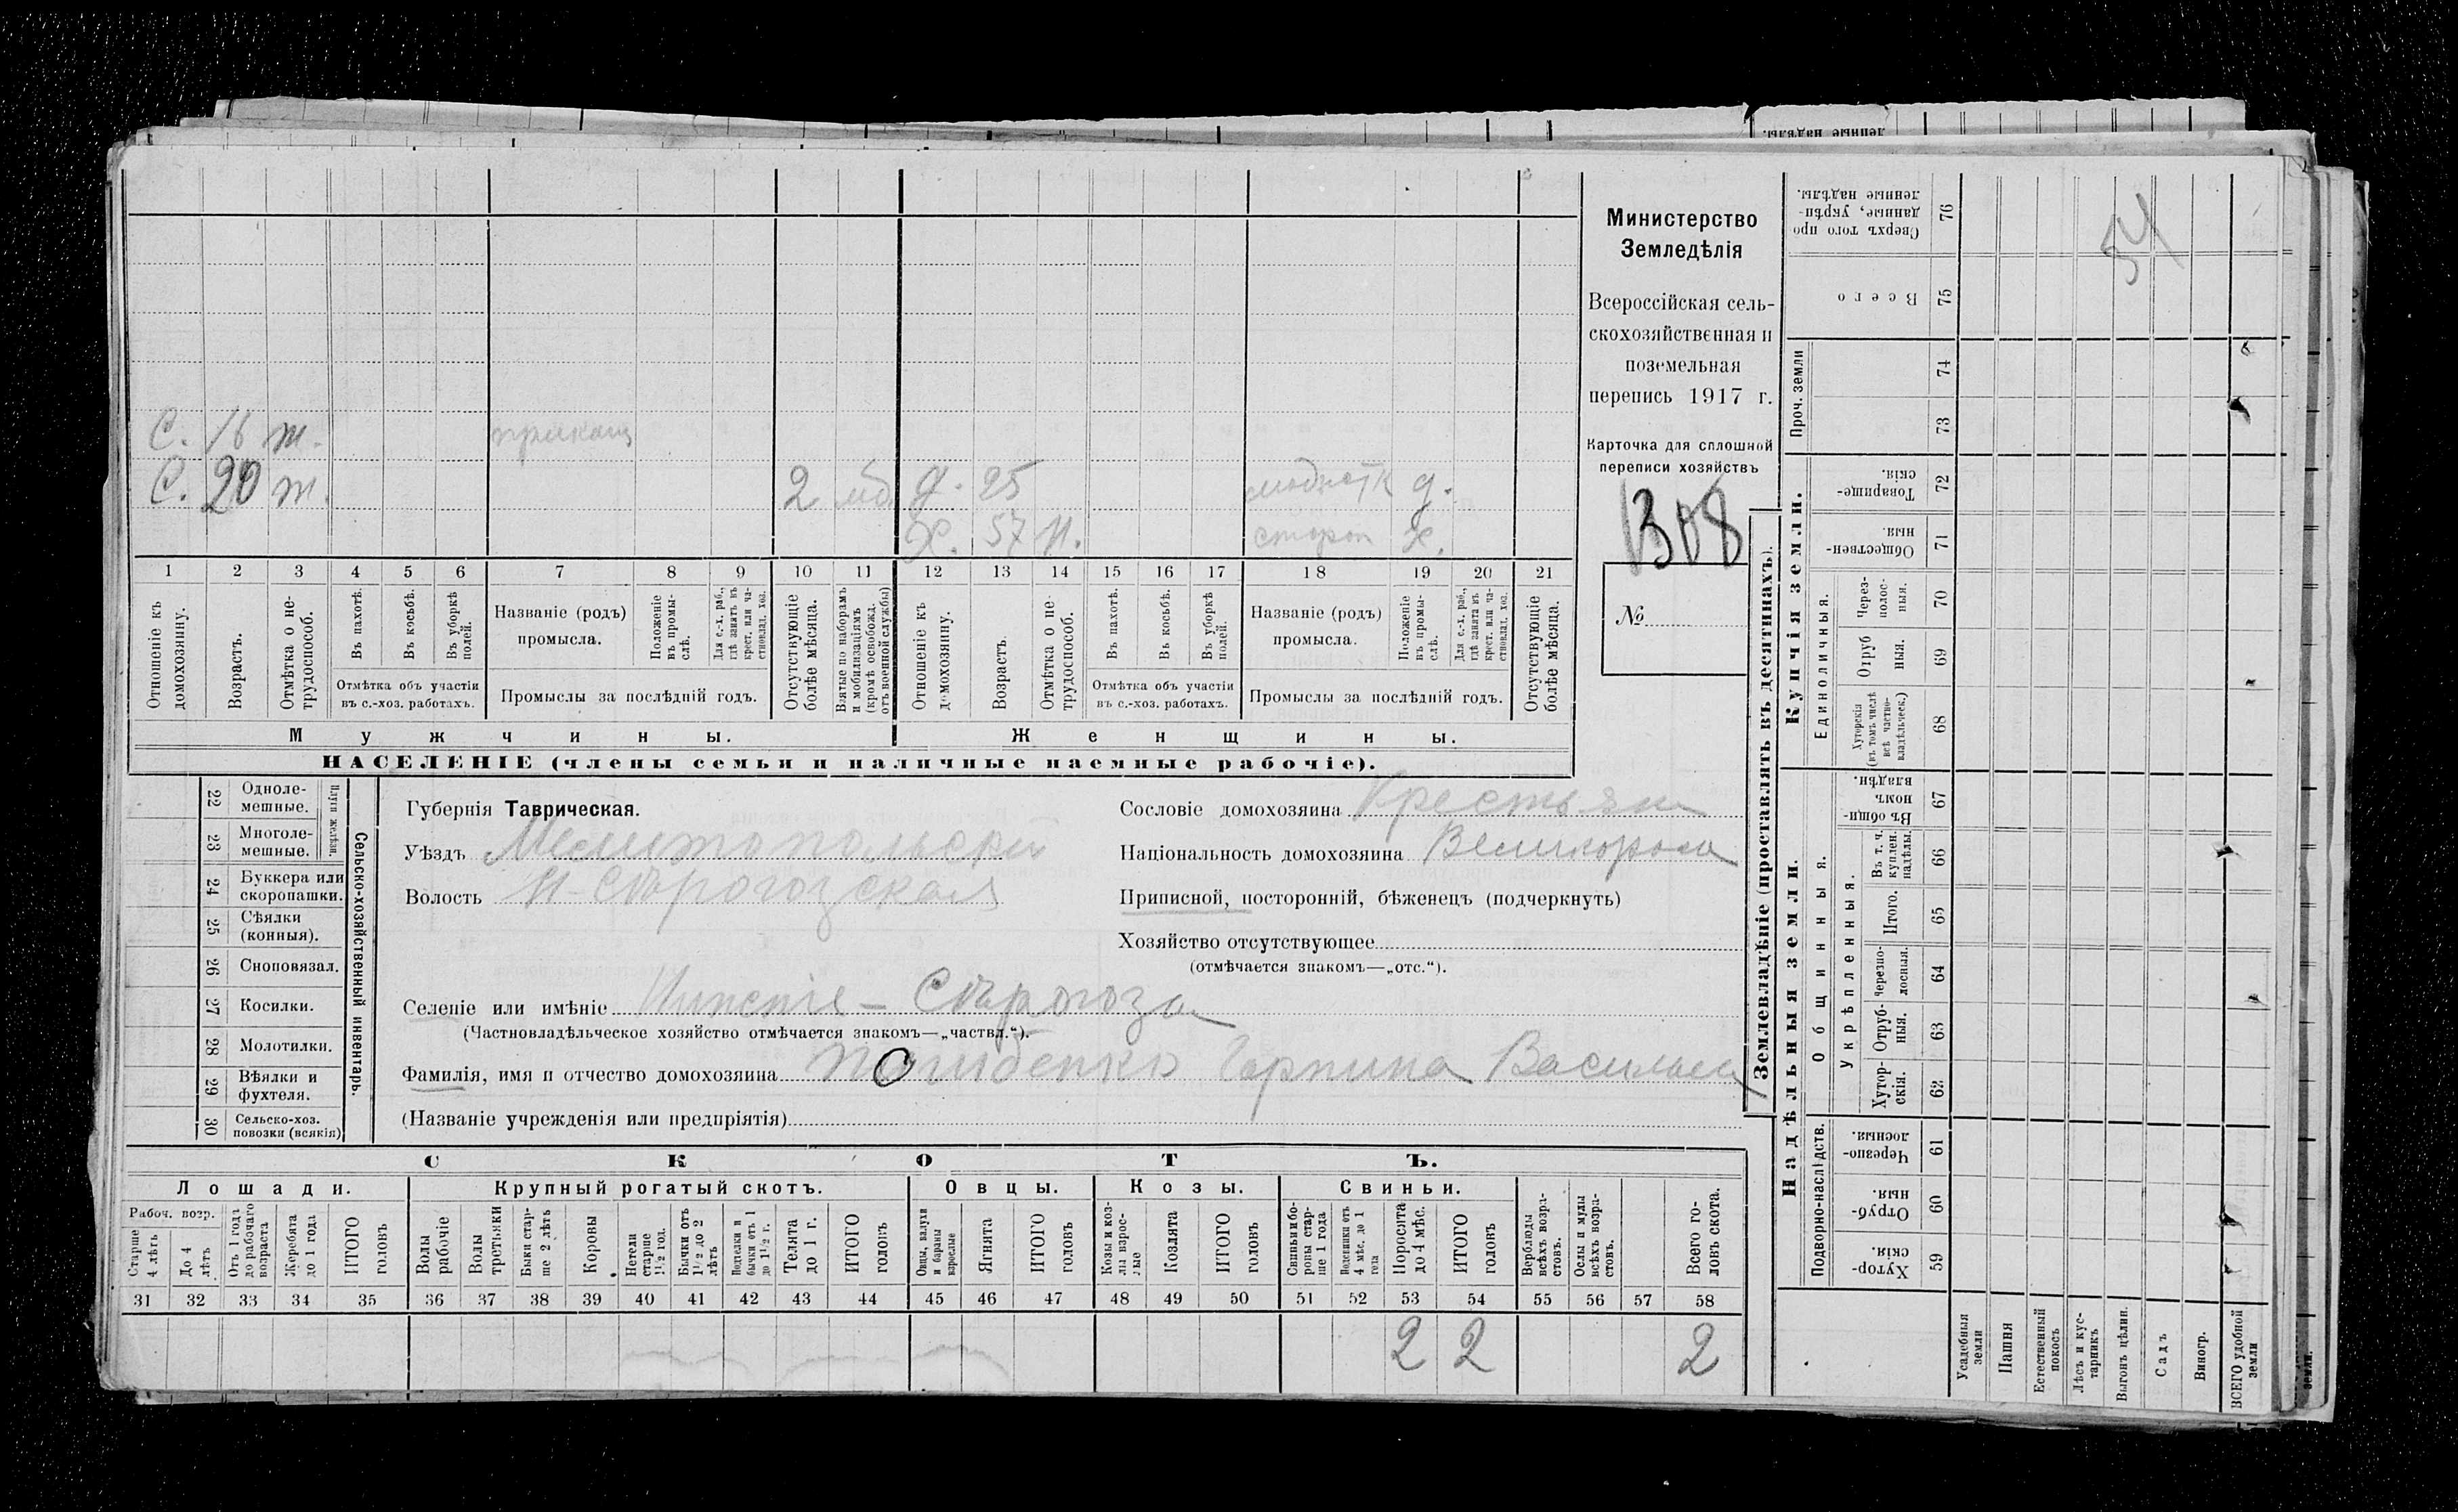 Министерство
Земледѣлія
Всероссійская сель-
скохозяйственная и
поземельная
перепись 1917 г.
Карточка для сплошной
переписи хозяйствъ
1308
№
54
С. 16 т.
С. 20 т. 2 мб д. 25 д.
Х. 57 п. Х.
1 2 3 4 5 6 7 8 9 10 11 12 13 14 15 16 17 18 19 20 21
Отношеніе къ домохозяину.
Возрастъ.
Отмѣтка о не-трудоспособ.
Въ пахотѣ.
Въ косьбѣ.
Въ уборкѣ полей.
Отмѣтка объ участіи
въ с.-хоз. работахъ.
Названіе (родъ)
промысла.
Положеніе въ промы-слѣ.
Для с.-х. раб., гдѣ занятъ въ крест. или ча-стновлад. хоз.
Промыслы за послѣдній годъ.
Отсутствующіе болѣе мѣсяца.
Взятые по наборамъ и мобилизаціямъ (кромѣ освобожд. отъ военной службы)
Отношеніе къ домохозяину.
Возрастъ.
Отмѣтка о не-трудоспособ.
Въ пахотѣ.
Въ косьбѣ.
Въ уборкѣ полей.
Отмѣтка объ участіи
въ с.-хоз. работахъ.
Названіе (родъ)
промысла.
Положеніе въ промы-слѣ.
Для с.-х. раб., гдѣ занята въ крест. или ча-стновлад. хоз.
Промыслы за послѣдній годъ.
Отсутствующіе болѣе мѣсяца.
Мужчины.
Женщины.
НАСЕЛЕНІЕ (члены семьи и наличные наемные рабочіе).
22 Одноле-мешные.
23 Многоле-мешные.
Плуги желѣзн.
24 Буккера или скоропашки.
25 Сѣялки (конныя).
26 Сноповязал.
27 Косилки.
28 Молотилки.
29 Вѣялки и фухтеля.
30 Сельско-хоз. повозки (всякія)
Сельско-хозяйственный инвентарь.
Губернія Таврическая.
Уѣздъ Мелитопольскій
Волость Н-Сѣрогозская
Сословіе домохозяина Крестьян
Національность домохозяина Великоросса
Приписной, посторонній, бѣженецъ (подчеркнуть)
Хозяйство отсутствующее
(отмѣчается знакомъ—„отс.“).
Селеніе или имѣніе Нижніе - Сѣрогозы
(Частновладѣльческое хозяйство отмѣчается знакомъ—„частвл.“).
Фамилія, имя и отчество домохозяина Василье
(Названіе учрежденія или предпріятія)
СКОТЪ.
Лошади.
Крупный рогатый скотъ.
Овцы.
Козы.
Свиньи.
Рабоч. возр.
Старше 4 лѣтъ
До 4 лѣтъ
Отъ 1 года до рабочаго возраста
Жеребята до 1 года
ИТОГО головъ
Волы рабочіе
Волы третьяки
Быки стар-ше 2 лѣтъ
Коровы
Нетели старше 1½ год.
Бычки отъ 1½ до 2 лѣтъ
Подтелки и бычки отъ 1 до 1½ г.
Телята до 1 г.
ИТОГО головъ
Овцы, валухи и бараны взрослые
Ягнята
ИТОГО головъ
Козы и коз-лы взрос-лые
Козлята
ИТОГО головъ
Свиньи и бо-ровы стар-ше 1 года
Подсвинки отъ 4 мѣс. до 1 года
Поросята до 4 мѣс.
ИТОГО головъ
Верблюды всѣхъ возра-стовъ.
Ослы и мулы всѣхъ возра-стовъ.
Всего го-ловъ скота.
31 32 33 34 35 36 37 38 39 40 41 42 43 44 45 46 47 48 49 50 51 52 53 54 55 56 57 58
2 2 2
Землевладѣніе (проставлять въ десятинахъ).
Купчія земли.
Надѣльныя земли.
Проч. земли
Единоличныя.
Общинныя.
Укрѣпленныя.
Подворно-наслѣдств.
Сверхъ того про-данные, укрѣп-ленные надѣлы. 76
Всего 75
74
73
Товарище-скія. 72
Обществен-ныя. 71
Через-полос-ныя. 70
Отруб ныя. 69
Хуторскія (въ томъ числѣ всѣ частно-владѣльческ.) 68
Въ общин-номъ владѣн. 67
Въ т. ч. куплен. надѣлы. 66
Итого. 65
Черезпо-лосныя. 64
Отруб-ныя. 63
Хутор-скія. 62
Черезпо-лосныя. 61
Отруб-ныя. 60
Хутор-скія. 59
Усадебныя земли
Пашня
Естественный покосъ
Лѣсъ и кус-тарникъ
Выгонъ цѣлин.
Садъ
Виногр.
ВСЕГО удобной земли